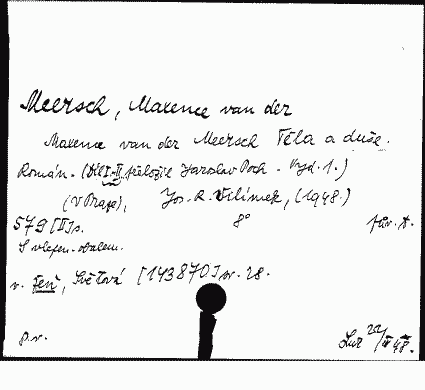 Meersch, Maxence van der
Maxence van der Meersch Těla a duše.
Román. - (Díl I-II. přeložil Jaroslav Poch. - Vyd. 1.)
(V Praze), Jos. R. Vilímek, (1948.)
579 [II] s. 8°
S vlep. obálem.
v. Žeň, Světová [143870] sv. 28.
p.v. 22/ 48.